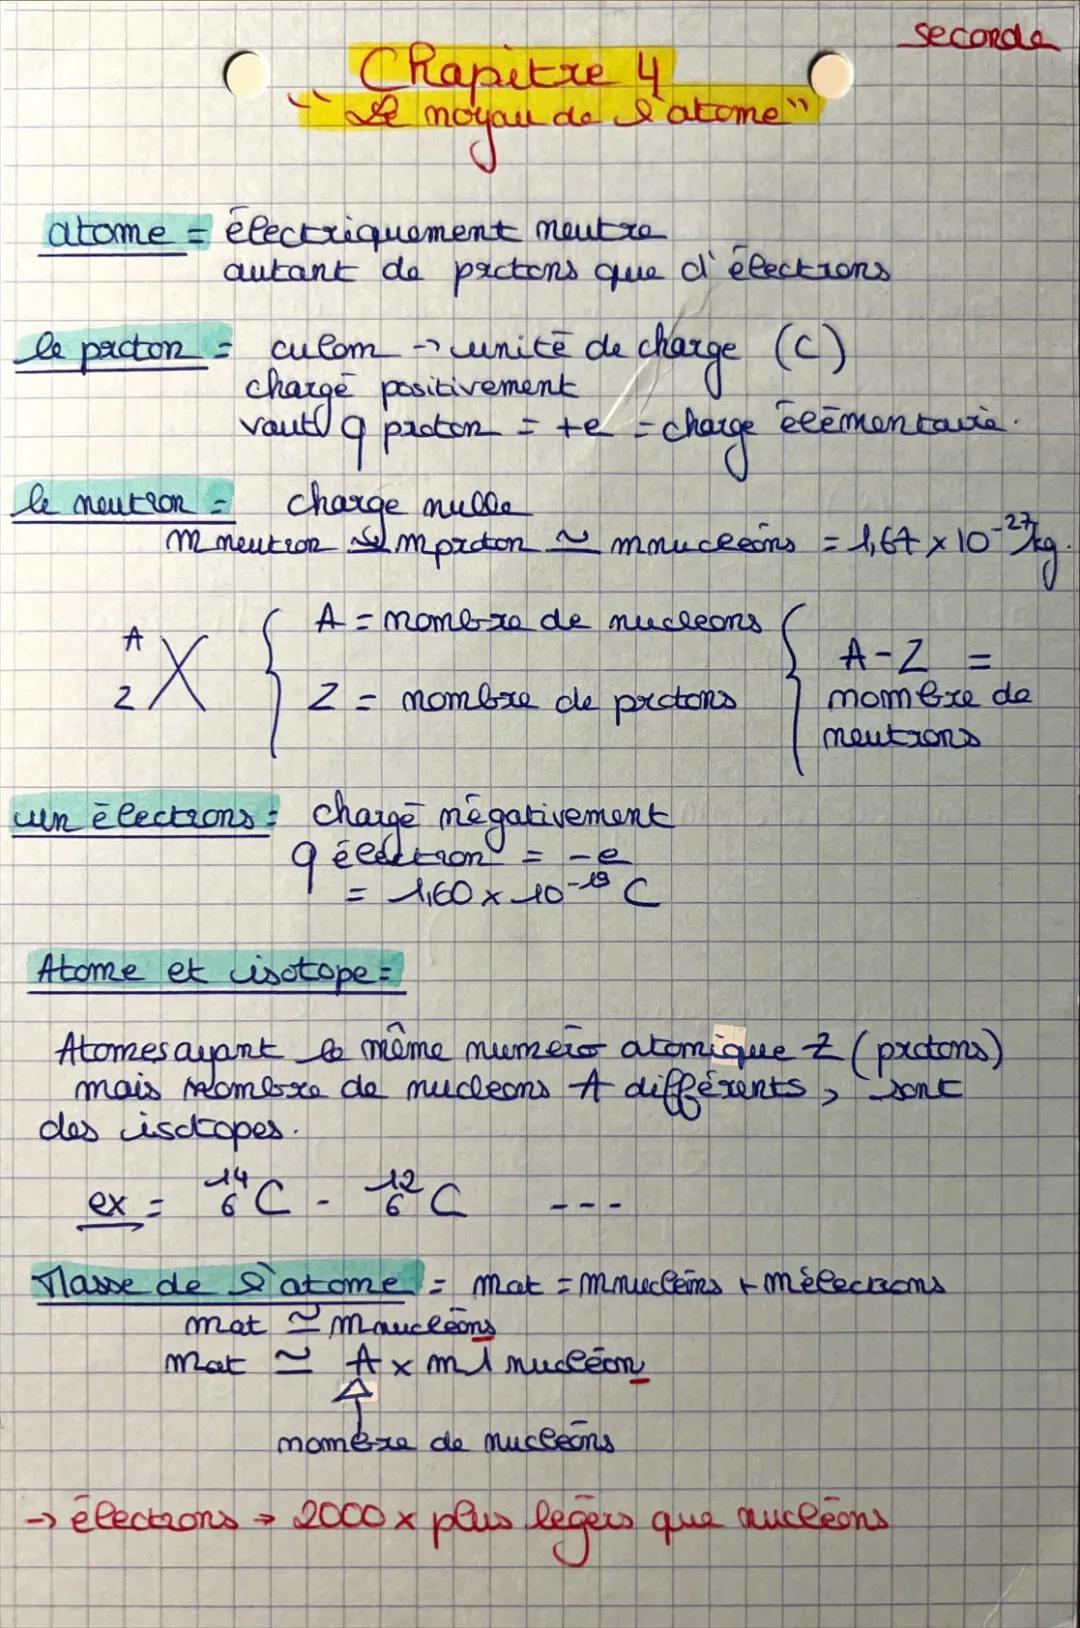 seconde
Chapitre 4
"Le noyau de l'atome"
atome = électriquement neutre
autant de protons que d'électrons
le proton = culom → unité de charge (C)
chargé positivement
vaut q proton = +e = charge élémentaire.
le neutron = charge nulle
m neutron ≃ m proton ≃ m nucléons = 1,67 x 10⁻²⁷ kg.
A = nombre de nucleons
A
Z X
Z = nombre de protons
A - Z =
nombre de
neutrons
un électrons = chargé négativement
q électron = -e
= 1,60 x 10⁻¹⁹ C
Atome et isotope =
Atomes ayant le même numéro atomique Z (protons)
mais nombre de nucleons A différents, sont
des isotopes.
ex = ¹⁴₆C - ¹²₆C ---
Masse de l'atome = mat = m nucléons + m électrons
mat ≃ m nucléons
mat ≃ A x m 1 nucléon
nombre de nucléons
→ électrons → 2000 x plus légers que nucléons